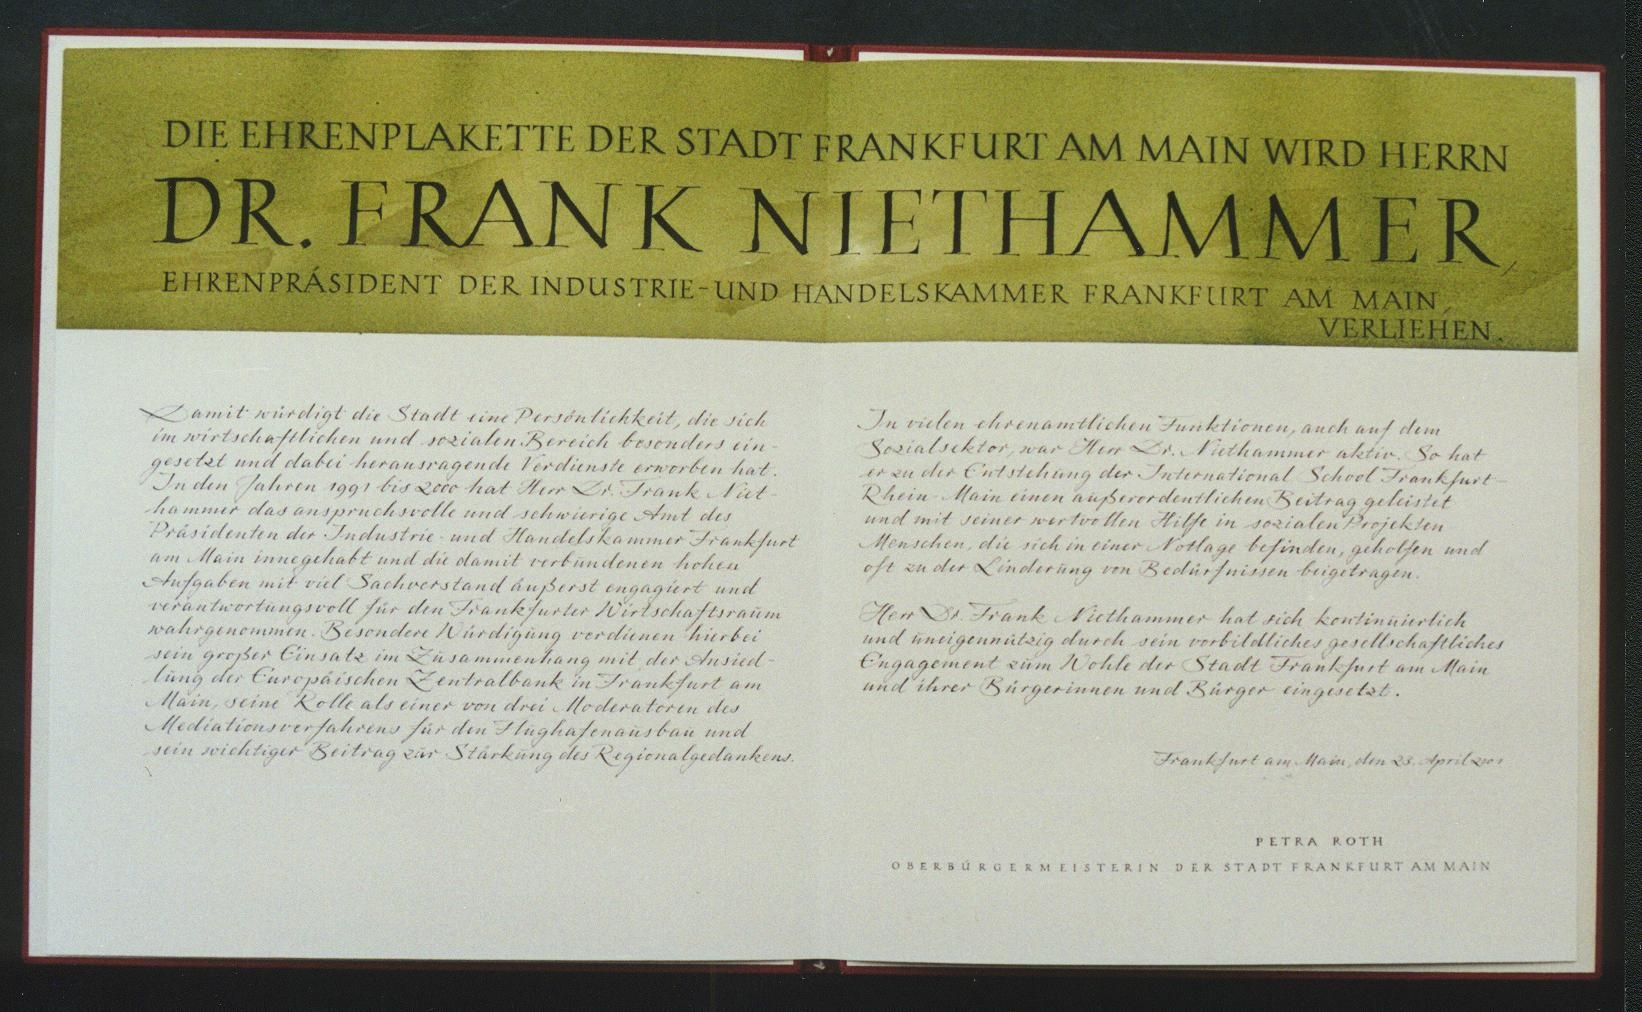 DIE EHRENPLAKETTE DER STADT FRANKFURT AM MAIN WIRD HERRN
DR. FRANK NIETHAMMER,
EHRENPRÄSIDENT DER INDUSTRIE-UND HANDELSKAMMER FRANKFURT AM MAIN,
VERLIEHEN.
Damit würdigt die Stadt eine Persönlichkeit, die sich
im wirtschaftlichen und sozialen Bereich besonders ein-
gesetzt und dabei herausragende Verdienste erworben hat.
In den Jahren 1991 bis 2000 hat Herr Dr. Frank Niet-
hammer das anspruchsvolle und schwierige Amt des
Präsidenten der Industrie- und Handelskammer Frankfurt
am Main innegehabt und die damit verbundenen hohen
Aufgaben mit viel Sachverstand äußerst engagiert und
verantwortungsvoll für den Frankfurter Wirtschaftsraum
wahrgenommen. Besondere Würdigung verdienen hierbei
sein großer Einsatz im Zusammenhang mit der Ansied-
lung der Europäischen Zentralbank in Frankfurt am
Main, seine Rolle als einer von drei Moderatoren des
Mediationsverfahrens für den Flughafenausbau und
sein wichtiger Beitrag zur Stärkung des Regionalgedankens.
In vielen ehrenamtlichen Funktionen, auch auf dem
Sozialsektor, war Herr Dr. Niethammer aktiv. So hat
er zu der Entstehung der International School Frankfurt-
Rhein-Main einen außerordentlichen Beitrag geleistet
und mit seiner wertvollen Hilfe in sozialen Projekten
Menschen, die sich in einer Notlage befinden, geholfen und
oft zu der Linderung von Bedürfnissen beigetragen.
Herr Dr. Frank Niethammer hat sich kontinuierlich
und uneigennützig durch sein vorbildliches gesellschaftliches
Engagement zum Wohle der Stadt Frankfurt am Main
und ihrer Bürgerinnen und Bürger eingesetzt.
Frankfurt am Main, den 23. April 2001
PETRA ROTH
OBERBÜRGERMEISTERIN DER STADT FRANKFURT AM MAIN